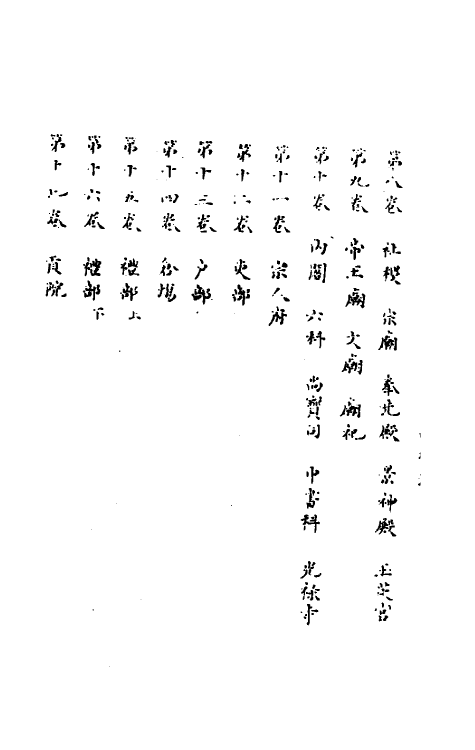 第八卷 社稷 宗廟 奉先殿 景神殿 玉芝宮
第九卷 帝王廟 文廟 廟祀
第十卷 內閣 六科 尚寶司 中書科 光祿寺
第十一卷 宗人府
第十二卷 吏部
第十三卷 戶部
第十四卷 倉場
第十五卷 禮部上
第十六卷 禮部下
第十七卷 貢院